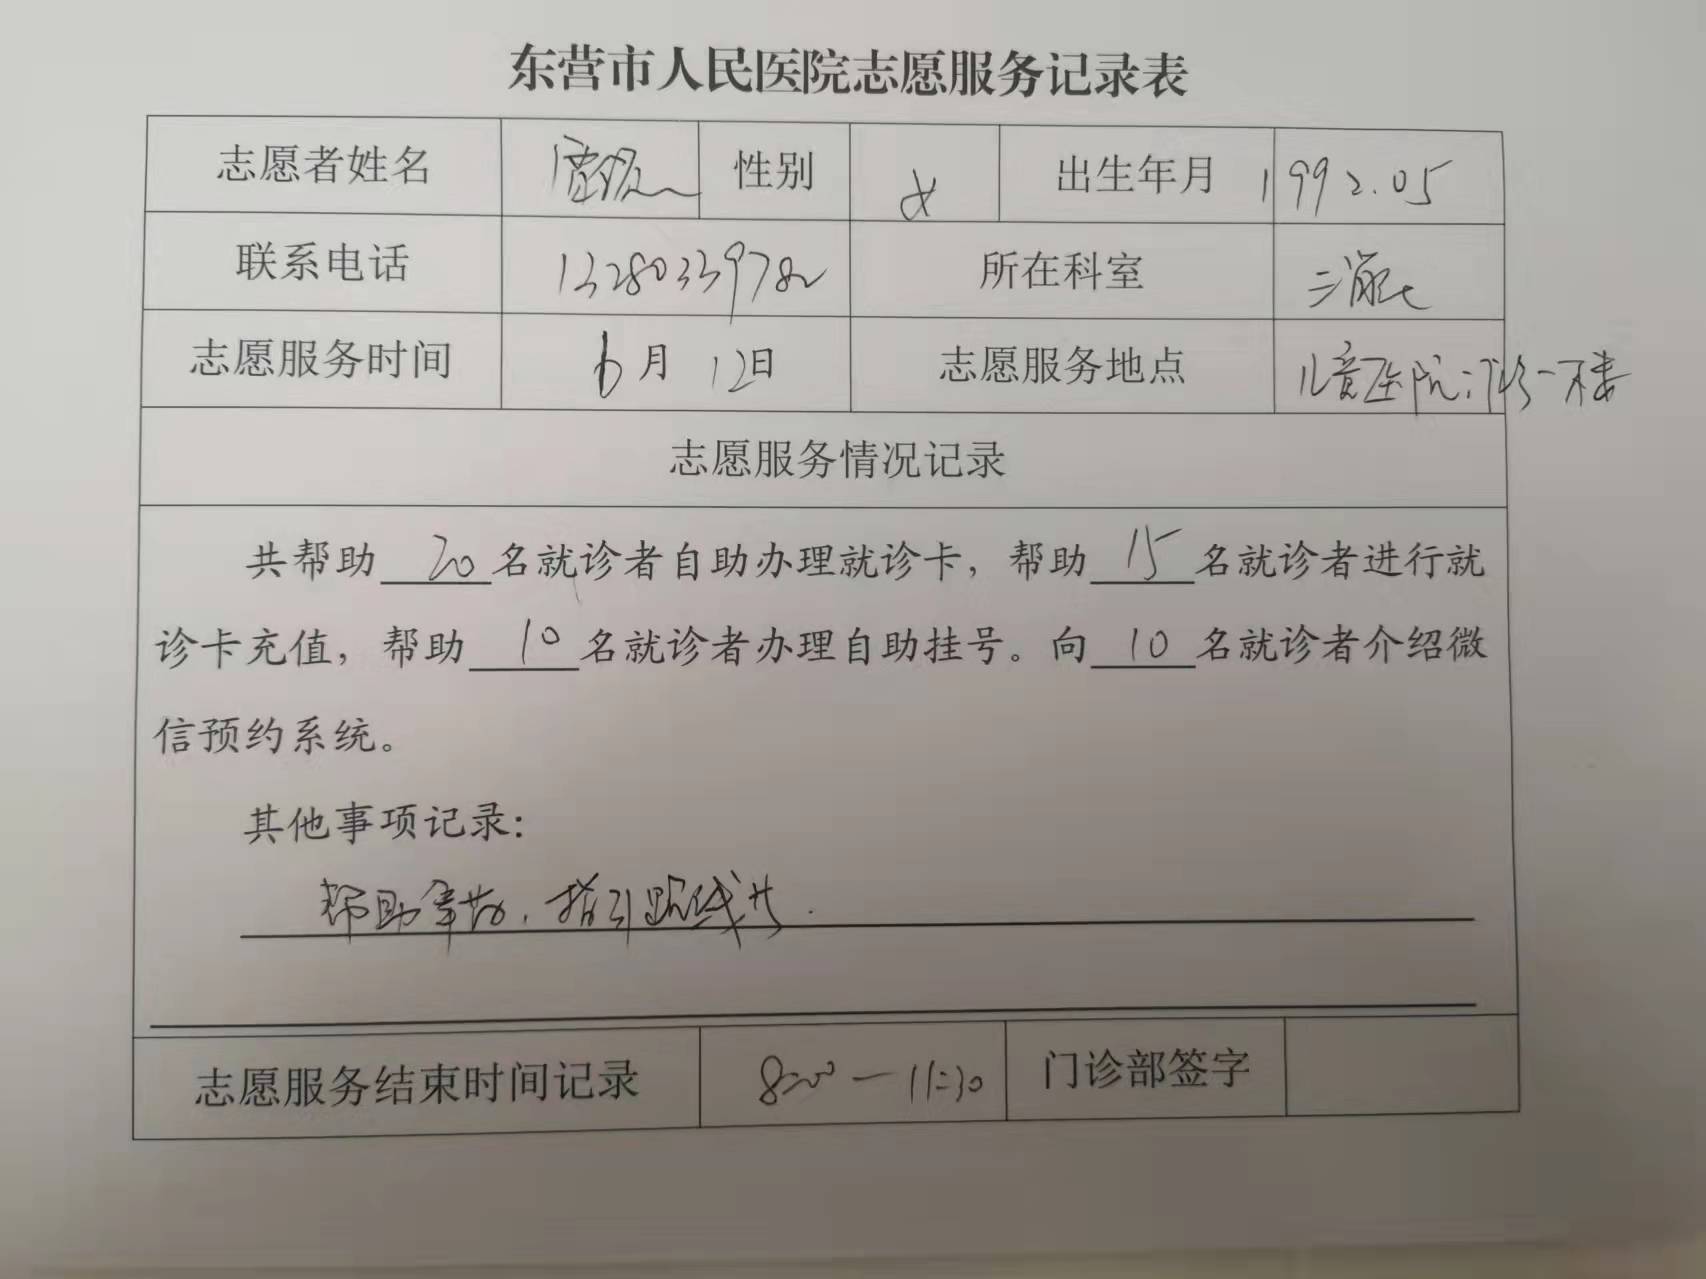 东营市人民医院志愿服务记录表
志愿者姓名 性别 女 出生年月 1992.05
联系电话 13280339782 所在科室
志愿服务时间 6月12日 志愿服务地点 儿童医院门诊一楼
志愿服务情况记录
共帮助20名就诊者自助办理就诊卡，帮助15名就诊者进行就
诊卡充值，帮助10名就诊者办理自助挂号。向10名就诊者介绍微
信预约系统。
其他事项记录：
帮助 指引路线
志愿服务结束时间记录 8:00—11:30 门诊部签字